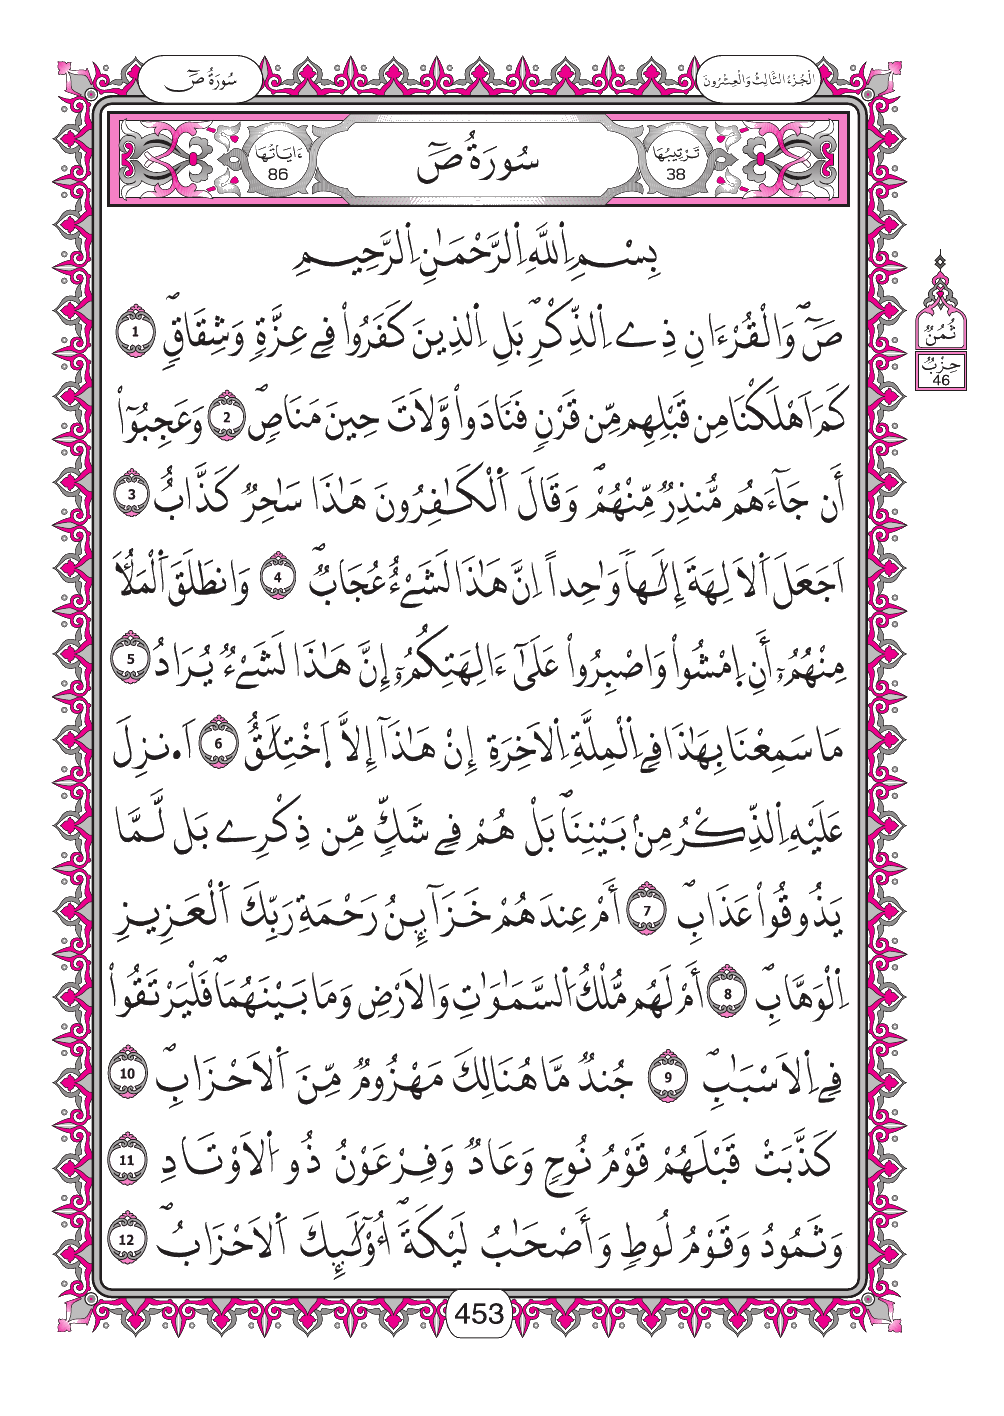 الْجُزْءُ الثَّالِثُ وَالْعِشْرُونَ
سُورَةُ صٓ
تَرْتِيبُهَا 38
سُورَةُ صٓ
ءَايَاتُهَا 86
بِسْمِ اِ۬للَّهِ اِ۬لرَّحْمَٰنِ اِ۬لرَّحِيمِ
صٓۖ وَالْقُرْءَانِ ذِے اِ۬لذِّكْرِۖ بَلِ اِ۬لذِينَ كَفَرُواْ فِے عِزَّةٖ وَشِقَاقٖۖ 1
ثُمُنُ
حِزْبُ
46
كَمَ اَهْلَكْنَا مِن قَبْلِهِم مِّن قَرْنٖ فَنَادَواْ وَّلَاتَ حِينَ مَنَاصٖۖ 2 وَعَجِبُوٓاْ
أَن جَآءَهُم مُّنذِرٞ مِّنْهُمْۖ وَقَالَ اَ۬لْكَٰفِرُونَ هَٰذَا سَٰحِرٞ كَذَّابٌ 3
اَجَعَلَ اَ۬لَالِهَةَ إِلَٰهاٗ وَٰحِداً اِنَّ هَٰذَا لَشَےْءٌ عُجَابٞۖ 4 وَانطَلَقَ اَ۬لْمَلَأُ
مِنْهُمُۥٓ أَنِ اِ۪مْشُواْ وَاصْبِرُواْ عَلَىٰٓ ءَالِهَتِكُمُۥٓ إِنَّ هَٰذَا لَشَےْءٞ يُرَادُ 5
مَا سَمِعْنَا بِهَٰذَا فِے اِ۬لْمِلَّةِ اِ۬لَاخِرَةِ إِنْ هَٰذَآ إِلَّا اَ۪خْتِلَٰقٌ 6 اَ.نزِلَ
عَلَيْهِ اِ۬لذِّكْرُ مِنۢ بَيْنِنَاۖ بَلْ هُمْ فِے شَكّٖ مِّن ذِكْرِے بَل لَّمَّا
يَذُوقُواْ عَذَابِۖ 7 أَمْ عِندَهُمْ خَزَآئِنُ رَحْمَةِ رَبِّكَ اَ۬لْعَزِيزِ
اِ۬لْوَهَّابِۖ 8 أَمْ لَهُم مُّلْكُ اُ۬لسَّمَٰوَٰتِ وَالَارْضِ وَمَا بَيْنَهُمَاۖ فَلْيَرْتَقُواْ
فِے اِ۬لَاسْبَٰبِۖ 9 جُندٞ مَّا هُنَالِكَ مَهْزُومٞ مِّنَ اَ۬لَاحْزَابِۖ 10
كَذَّبَتْ قَبْلَهُمْ قَوْمُ نُوحٖ وَعَادٞ وَفِرْعَوْنُ ذُو اُ۬لَاوْتَادِ 11
وَثَمُودُ وَقَوْمُ لُوطٖ وَأَصْحَٰبُ لَيْكَةَۖ أُوْلَٰٓئِكَ اَ۬لَاحْزَابُۖ 12
453